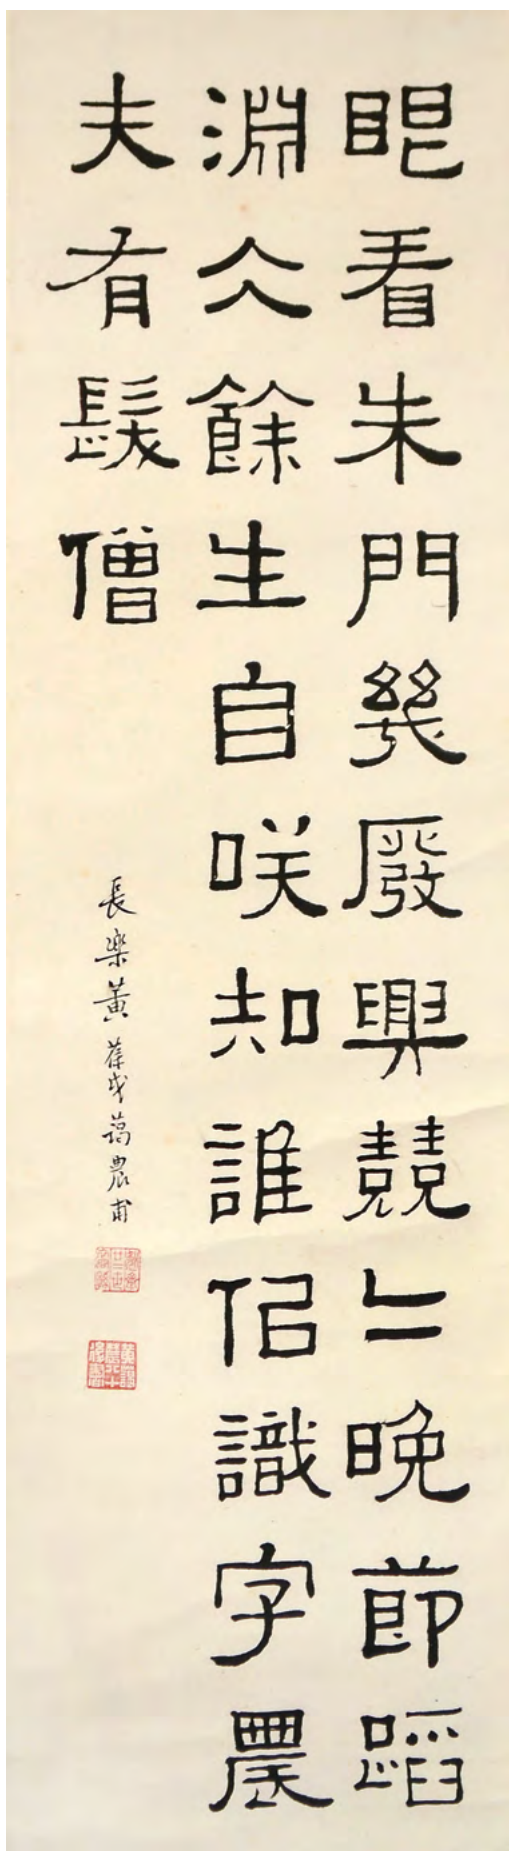 眼看朱門幾廢興兢〻晚節蹈
淵仌餘生自咲知誰佀識字農
夫有髮僧
長樂黃葆戉藹農甫